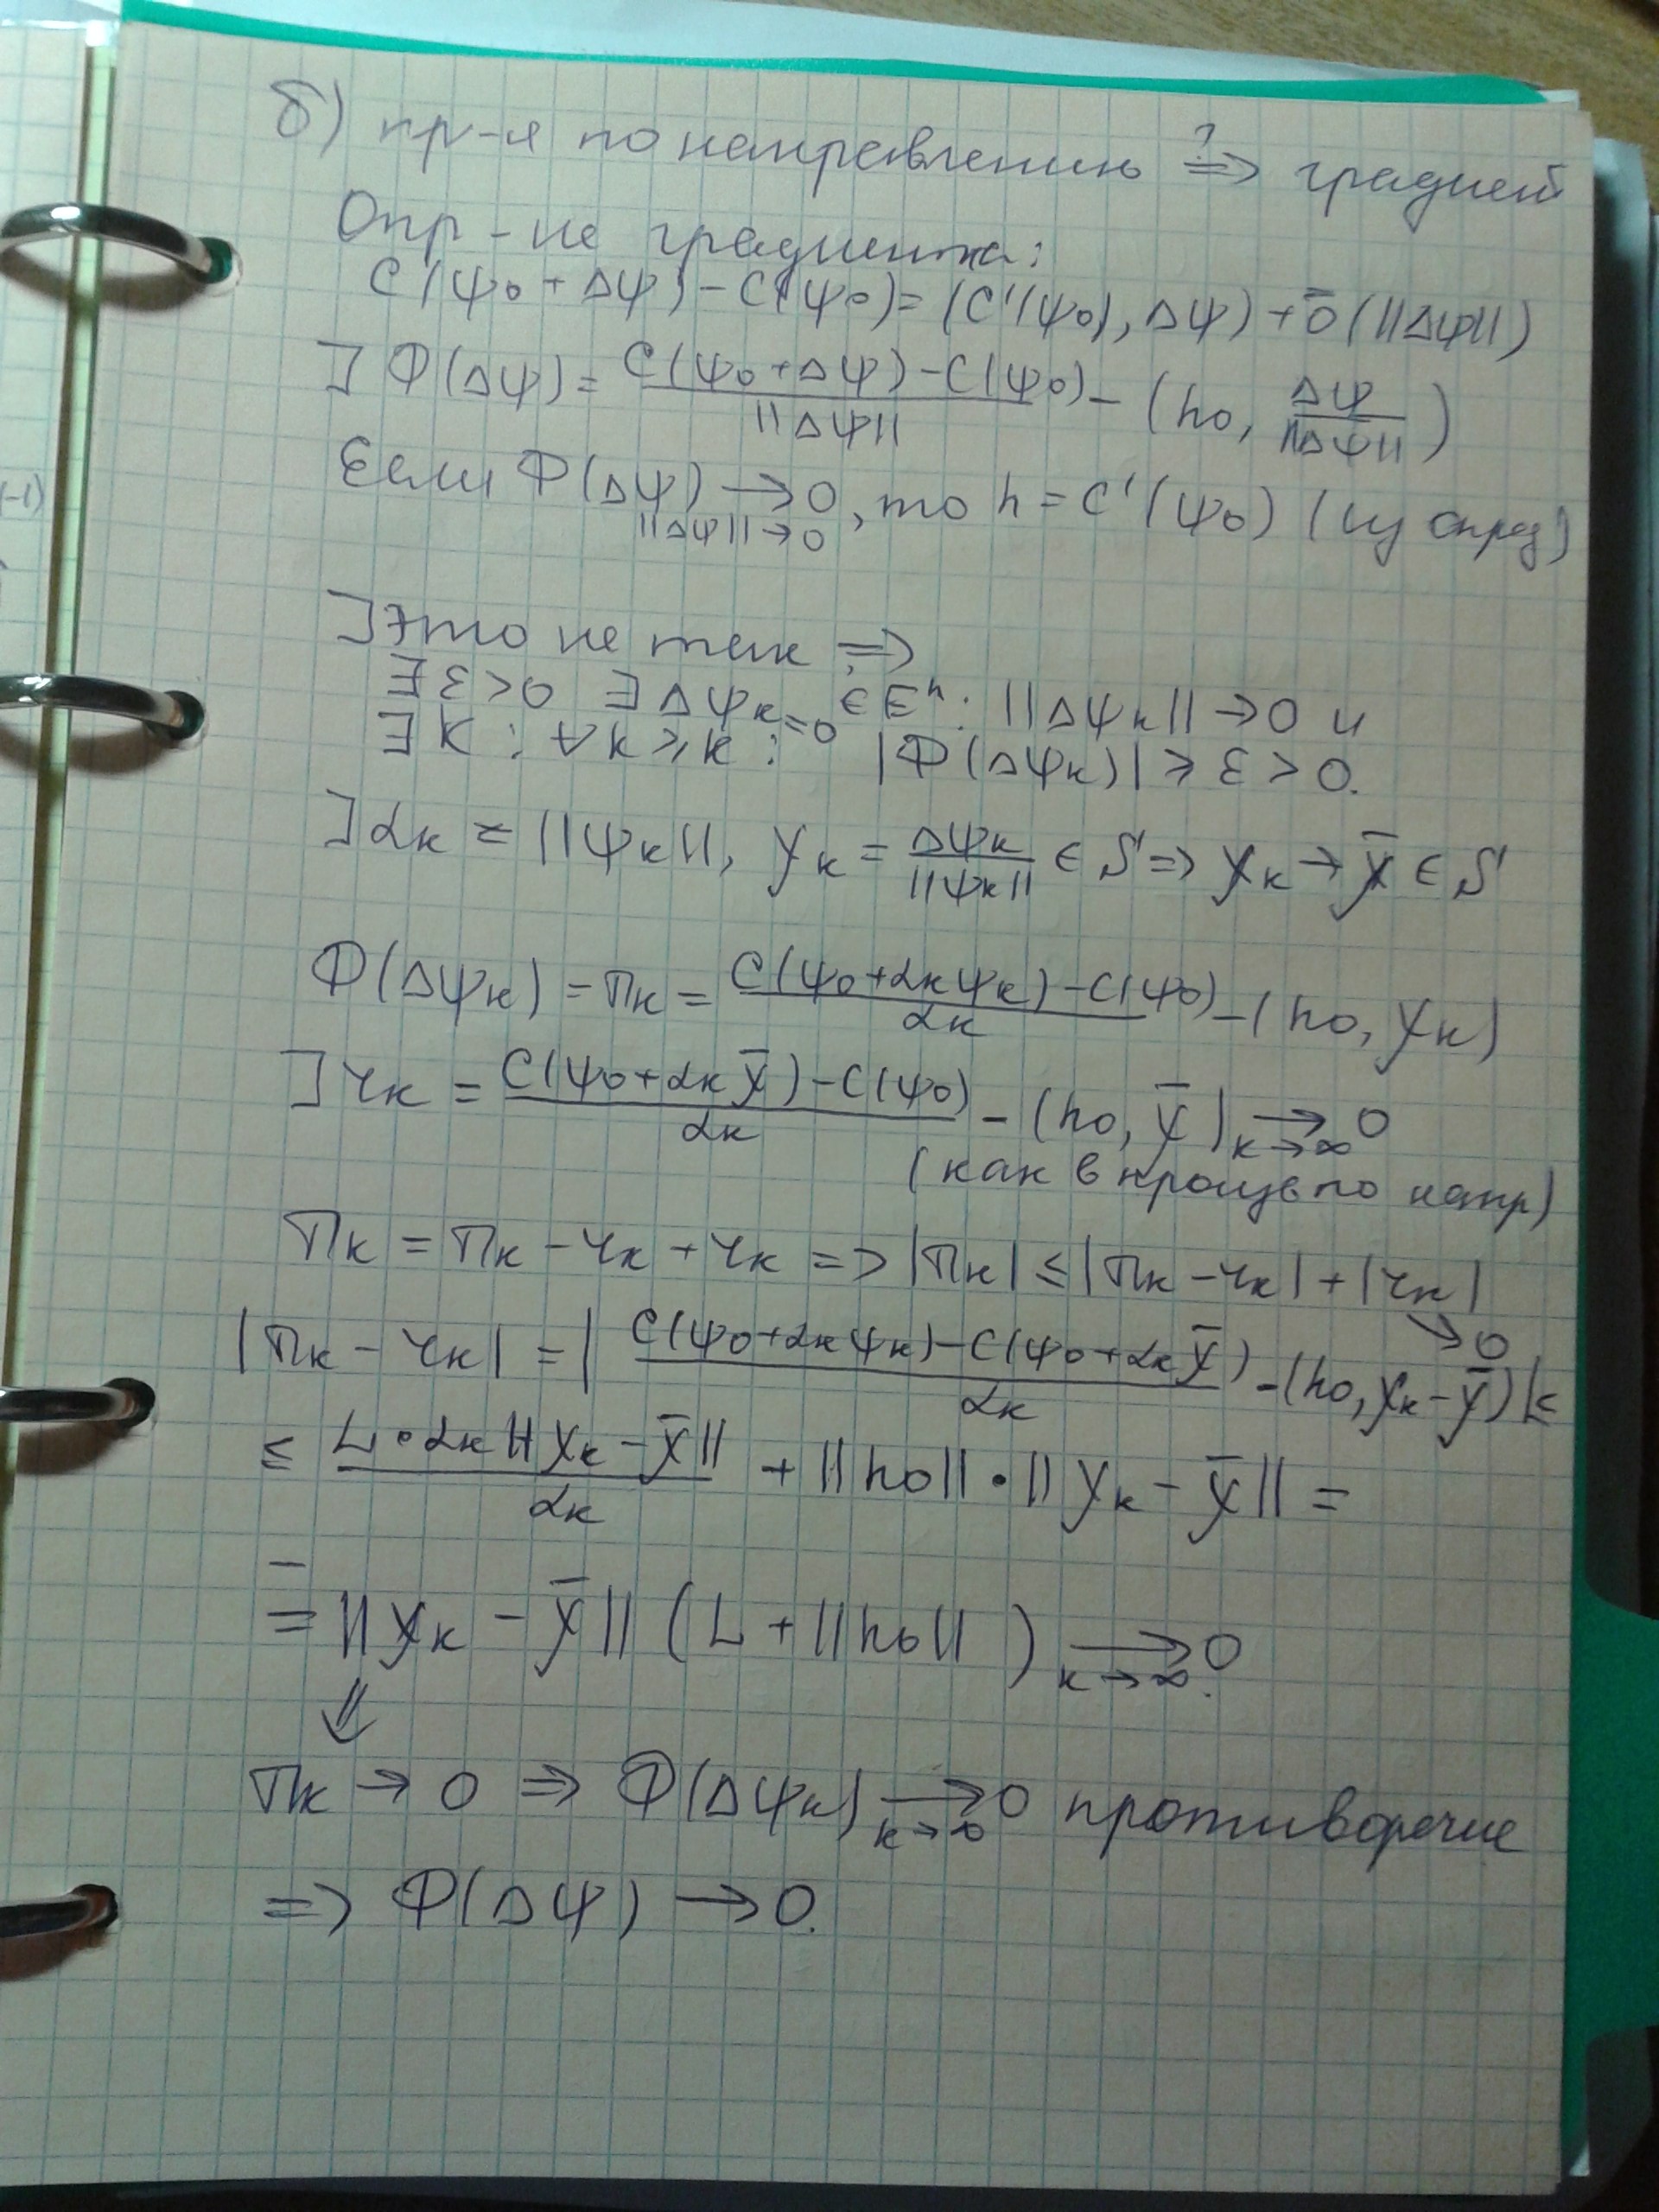 б) пр-я по направлению ?⇒ градиент
Опр-ие градиента:
C(ψ₀+Δψ)-C(ψ₀)=(C'(ψ₀),Δψ)+ō(||Δψ||)
] Φ(Δψ)= (C(ψ₀+Δψ)-C(ψ₀))/||Δψ|| - (h₀, Δψ/||Δψ||)
Если Φ(Δψ) → 0 ||Δψ||→0, то h=C'(ψ₀) (из опред)
] Это не так ⇒
∃ε>0 ∃Δψₖ ∈Eⁿ: ||Δψₖ||→0 и
∃K: ∀k≥K: |Φ(Δψₖ)|≥ε>0.
] αₖ=||ψₖ||, yₖ= Δψₖ/||ψₖ|| ∈S ⇒ yₖ→ȳ∈S
Φ(Δψₖ)=πₖ= (C(ψ₀+αₖψₖ)-C(ψ₀))/αₖ -(h₀,yₖ)
] чₖ= (C(ψ₀+αₖȳ)-C(ψ₀))/αₖ -(h₀,ȳ) → 0 k→∞
(как в произв по напр)
πₖ=πₖ-чₖ+чₖ ⇒ |πₖ|≤|πₖ-чₖ|+|чₖ|
↘0
|πₖ-чₖ|=| (C(ψ₀+αₖψₖ)-C(ψ₀+αₖȳ))/αₖ -(h₀,yₖ-ȳ)|≤
≤ L·αₖ||yₖ-ȳ||/αₖ + ||h₀||·||yₖ-ȳ|| =
= ||yₖ-ȳ||(L+||h₀||) → 0 k→∞.
⇓
πₖ→0 ⇒ Φ(Δψₖ) → 0 k→∞ противоречие
⇒ Φ(Δψ)→0.